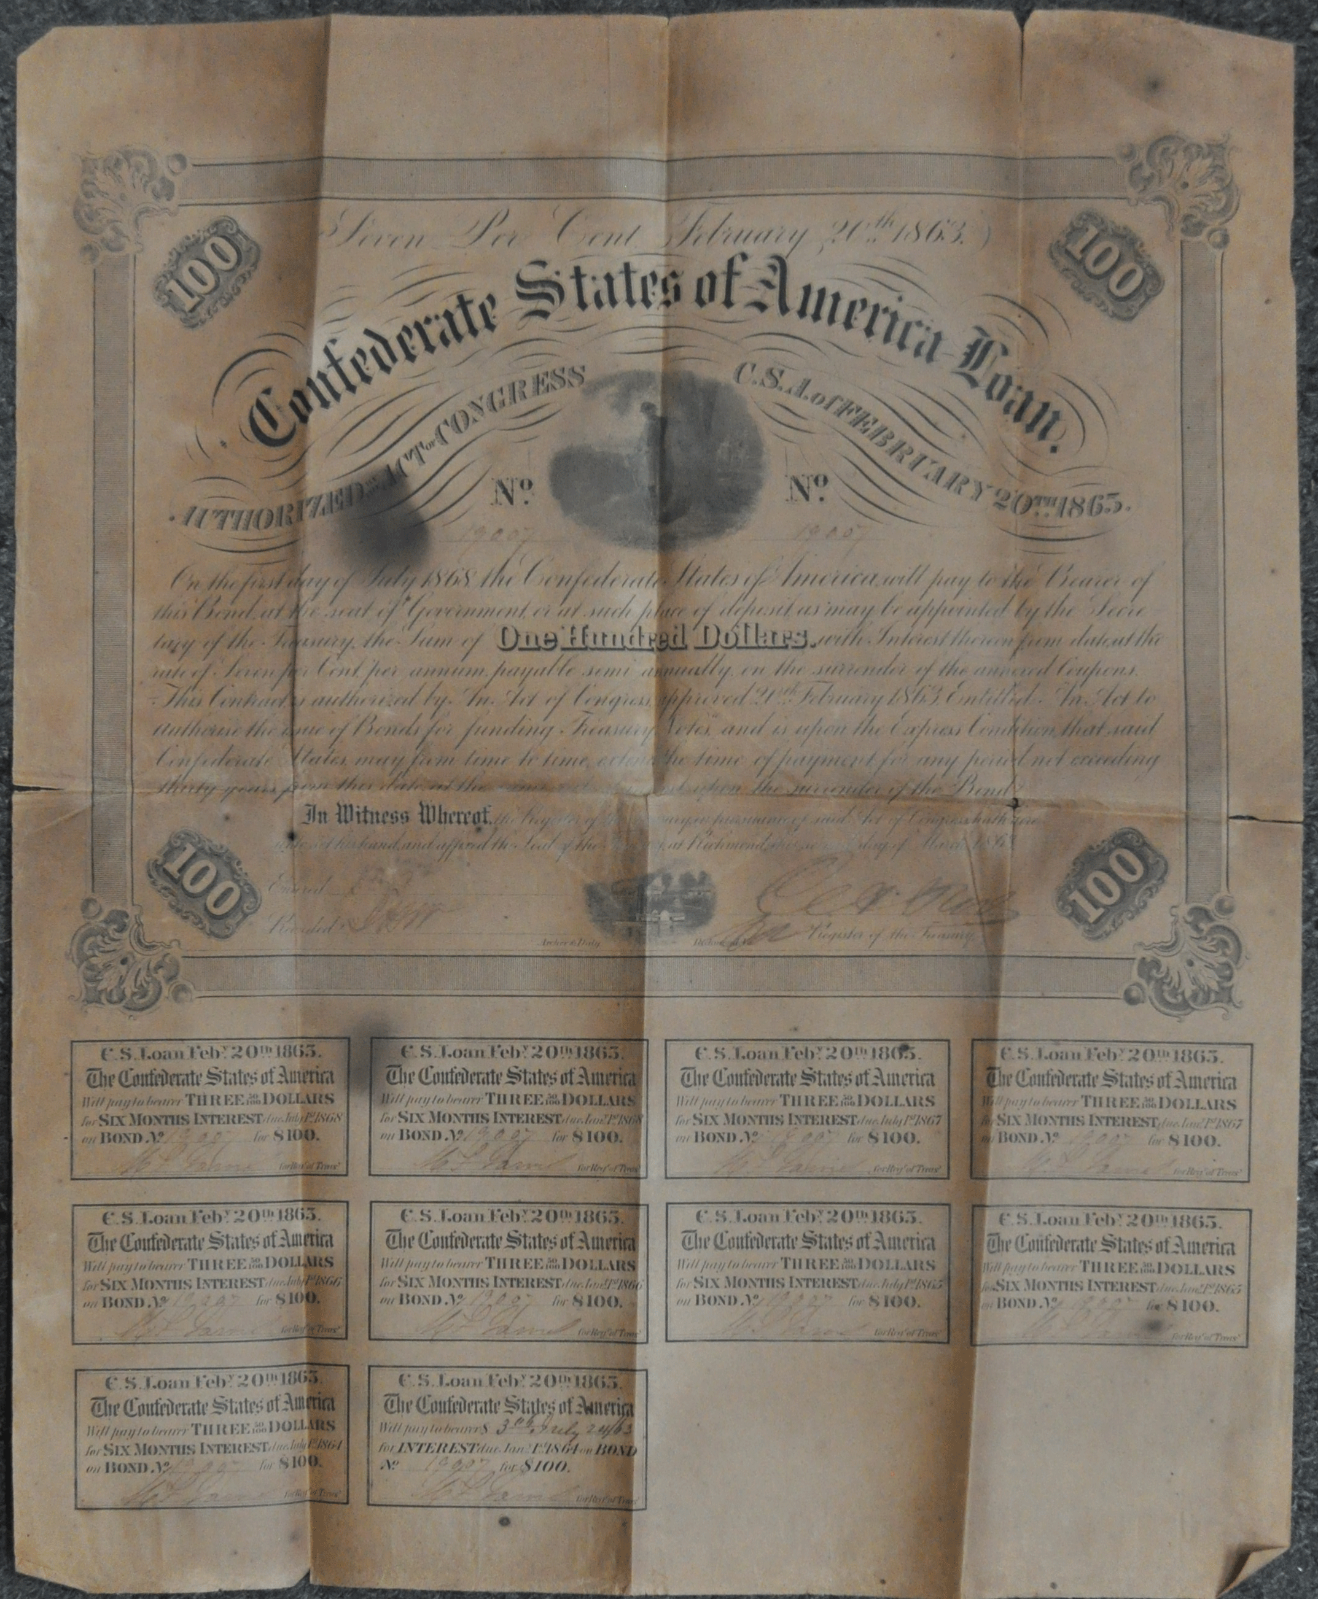 Seven Per Cent February 20th 1863.)
100 100
Confederate States of America Loan.
AUTHORIZED ACT OF CONGRESS C.S.A. of FEBRUARY 20TH 1863.
No. No.
19007 19007
On the first day of July 1868 the Confederate States of America will pay to the Bearer of
this Bond, at the seat of Government or at such place of deposit as may be appointed by the Secre
tary of the Treasury, the Sum of One Hundred Dollars. with Interest thereon from date, at the
rate of Seven per Cent per annum, payable semi annually, on the surrender of the annexed Coupons.
This Contract is authorized by An Act of Congress, approved 20th February 1863, Entitled An Act to
authorise the issue of Bonds for funding Treasury Notes, and is upon the Express Condition, that said
Confederate States, may from time to time, extend the time of payment for any period not exceeding
thirty years from this date, at the upon the surrender of the Bond.
In Witness Whereof, the Register of the Treasury in pursuance of said Act of Congress hath
set his hand and affixed the Seal of the at Richmond, day of 1863
100 100
Entered
Recorded
Register of the Treasury
C.S. Loan Feby 20th 1863.
The Confederate States of America
Will pay to bearer THREE 50/100 DOLLARS
for SIX MONTHS INTEREST due July 1st 1868
on BOND No 19007 for $100.
for Regr of Treasy
C.S. Loan Feby 20th 1863.
The Confederate States of America
Will pay to bearer THREE 50/100 DOLLARS
for SIX MONTHS INTEREST due Jany 1st 1868
on BOND No 19007 for $100.
for Regr of Treasy
C.S. Loan Feby 20th 1863.
The Confederate States of America
Will pay to bearer THREE 50/100 DOLLARS
for SIX MONTHS INTEREST due July 1st 1867
on BOND No 19007 for $100.
for Regr of Treasy
C.S. Loan Feby 20th 1863.
The Confederate States of America
Will pay to bearer THREE 50/100 DOLLARS
for SIX MONTHS INTEREST due Jany 1st 1867
on BOND No 19007 for $100.
for Regr of Treasy
C.S. Loan Feby 20th 1863.
The Confederate States of America
Will pay to bearer THREE 50/100 DOLLARS
for SIX MONTHS INTEREST due July 1st 1866
on BOND No 19007 for $100.
for Regr of Treasy
C.S. Loan Feby 20th 1863.
The Confederate States of America
Will pay to bearer THREE 50/100 DOLLARS
for SIX MONTHS INTEREST due Jany 1st 1866
on BOND No 19007 for $100.
for Regr of Treasy
C.S. Loan Feby 20th 1863.
The Confederate States of America
Will pay to bearer THREE 50/100 DOLLARS
for SIX MONTHS INTEREST due July 1st 1865
on BOND No 19007 for $100.
for Regr of Treasy
C.S. Loan Feby 20th 1863.
The Confederate States of America
Will pay to bearer THREE 50/100 DOLLARS
for SIX MONTHS INTEREST due Jany 1st 1865
on BOND No 19007 for $100.
for Regr of Treasy
C.S. Loan Feby 20th 1863.
The Confederate States of America
Will pay to bearer THREE 50/100 DOLLARS
for SIX MONTHS INTEREST due July 1st 1864
on BOND No 19007 for $100.
for Regr of Treasy
C.S. Loan Feby 20th 1863.
The Confederate States of America
Will pay to bearer $ July 24/63
for INTEREST due Jany 1st 1864 on BOND
No 19007 for $100.
for Regr of Treasy